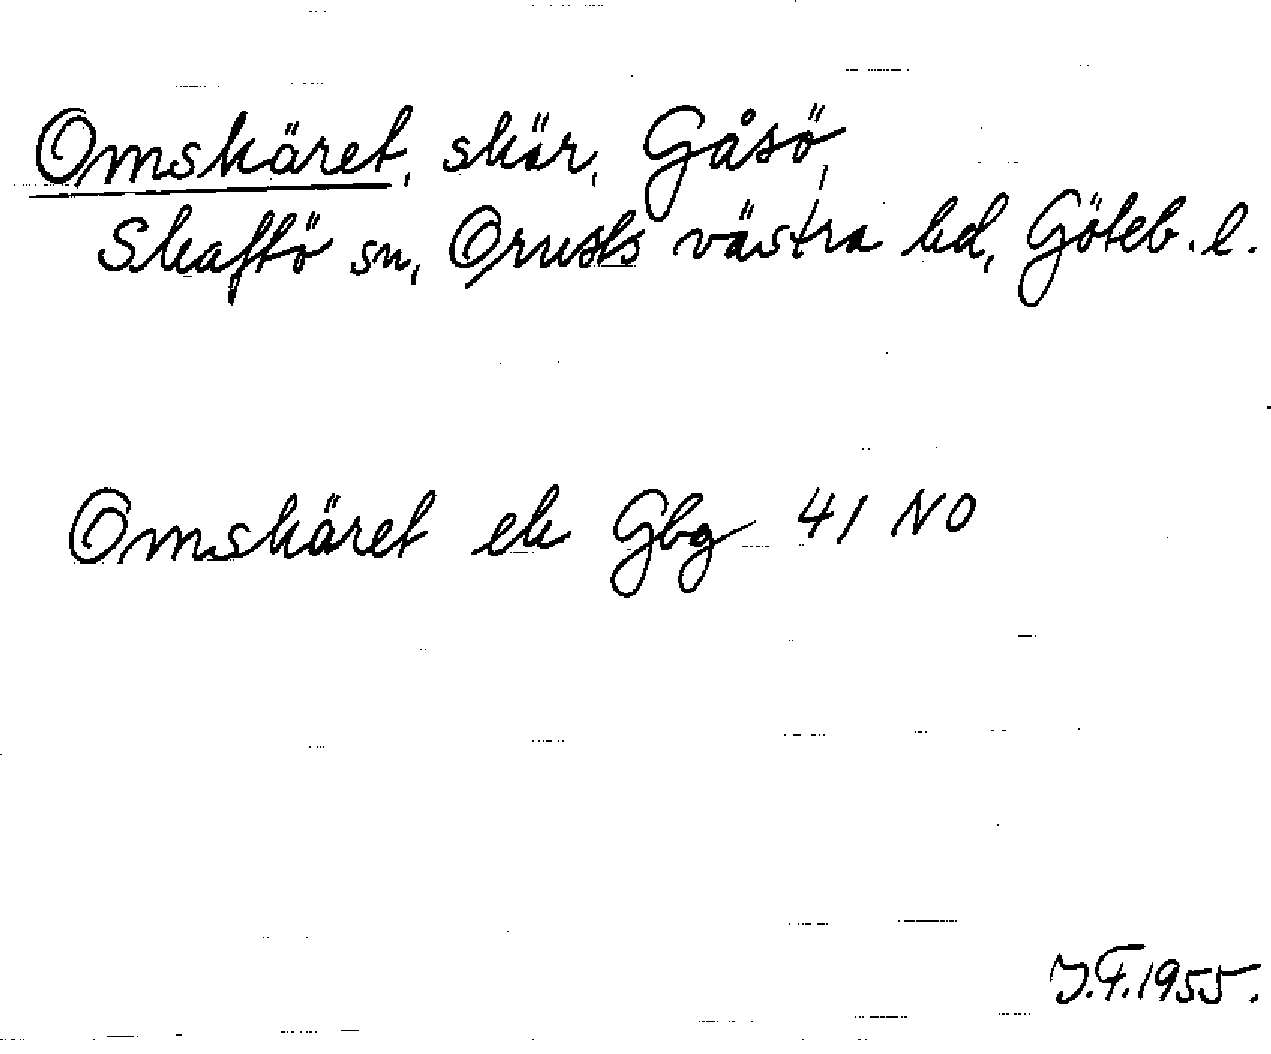 Omskäret, skär, Gåsö,
Skaftö sn, Orusts västra hd, Göteb. l.
Omskäret ek Gbg 41 NO
J.F. 1955.